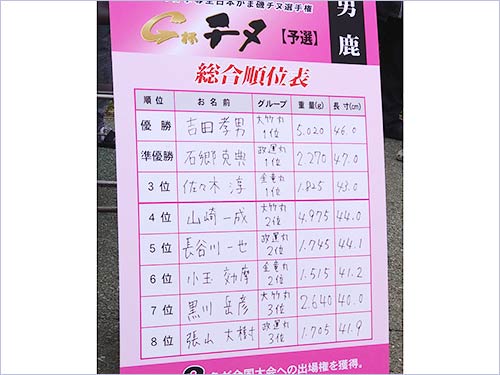 全日本かま磯チヌ選手権
男鹿
G杯チヌ【予選】
総合順位表
順位 お名前 グループ 重量(g) 長寸(cm)
優勝 吉田孝男 大竹丸1位 5.020 46.0
準優勝 石郷克典 政運丸1位 2.270 47.0
3位 佐々木淳 金竜丸1位 1.825 43.0
4位 山崎一成 大竹丸2位 4.975 44.0
5位 長谷川一也 政運丸2位 1.745 44.1
6位 小玉効摩 金竜丸2位 1.515 41.2
7位 黒川岳彦 大竹丸3位 2.640 40.0
8位 張山大樹 政運丸3位 1.705 41.9
全国大会への出場権を獲得。